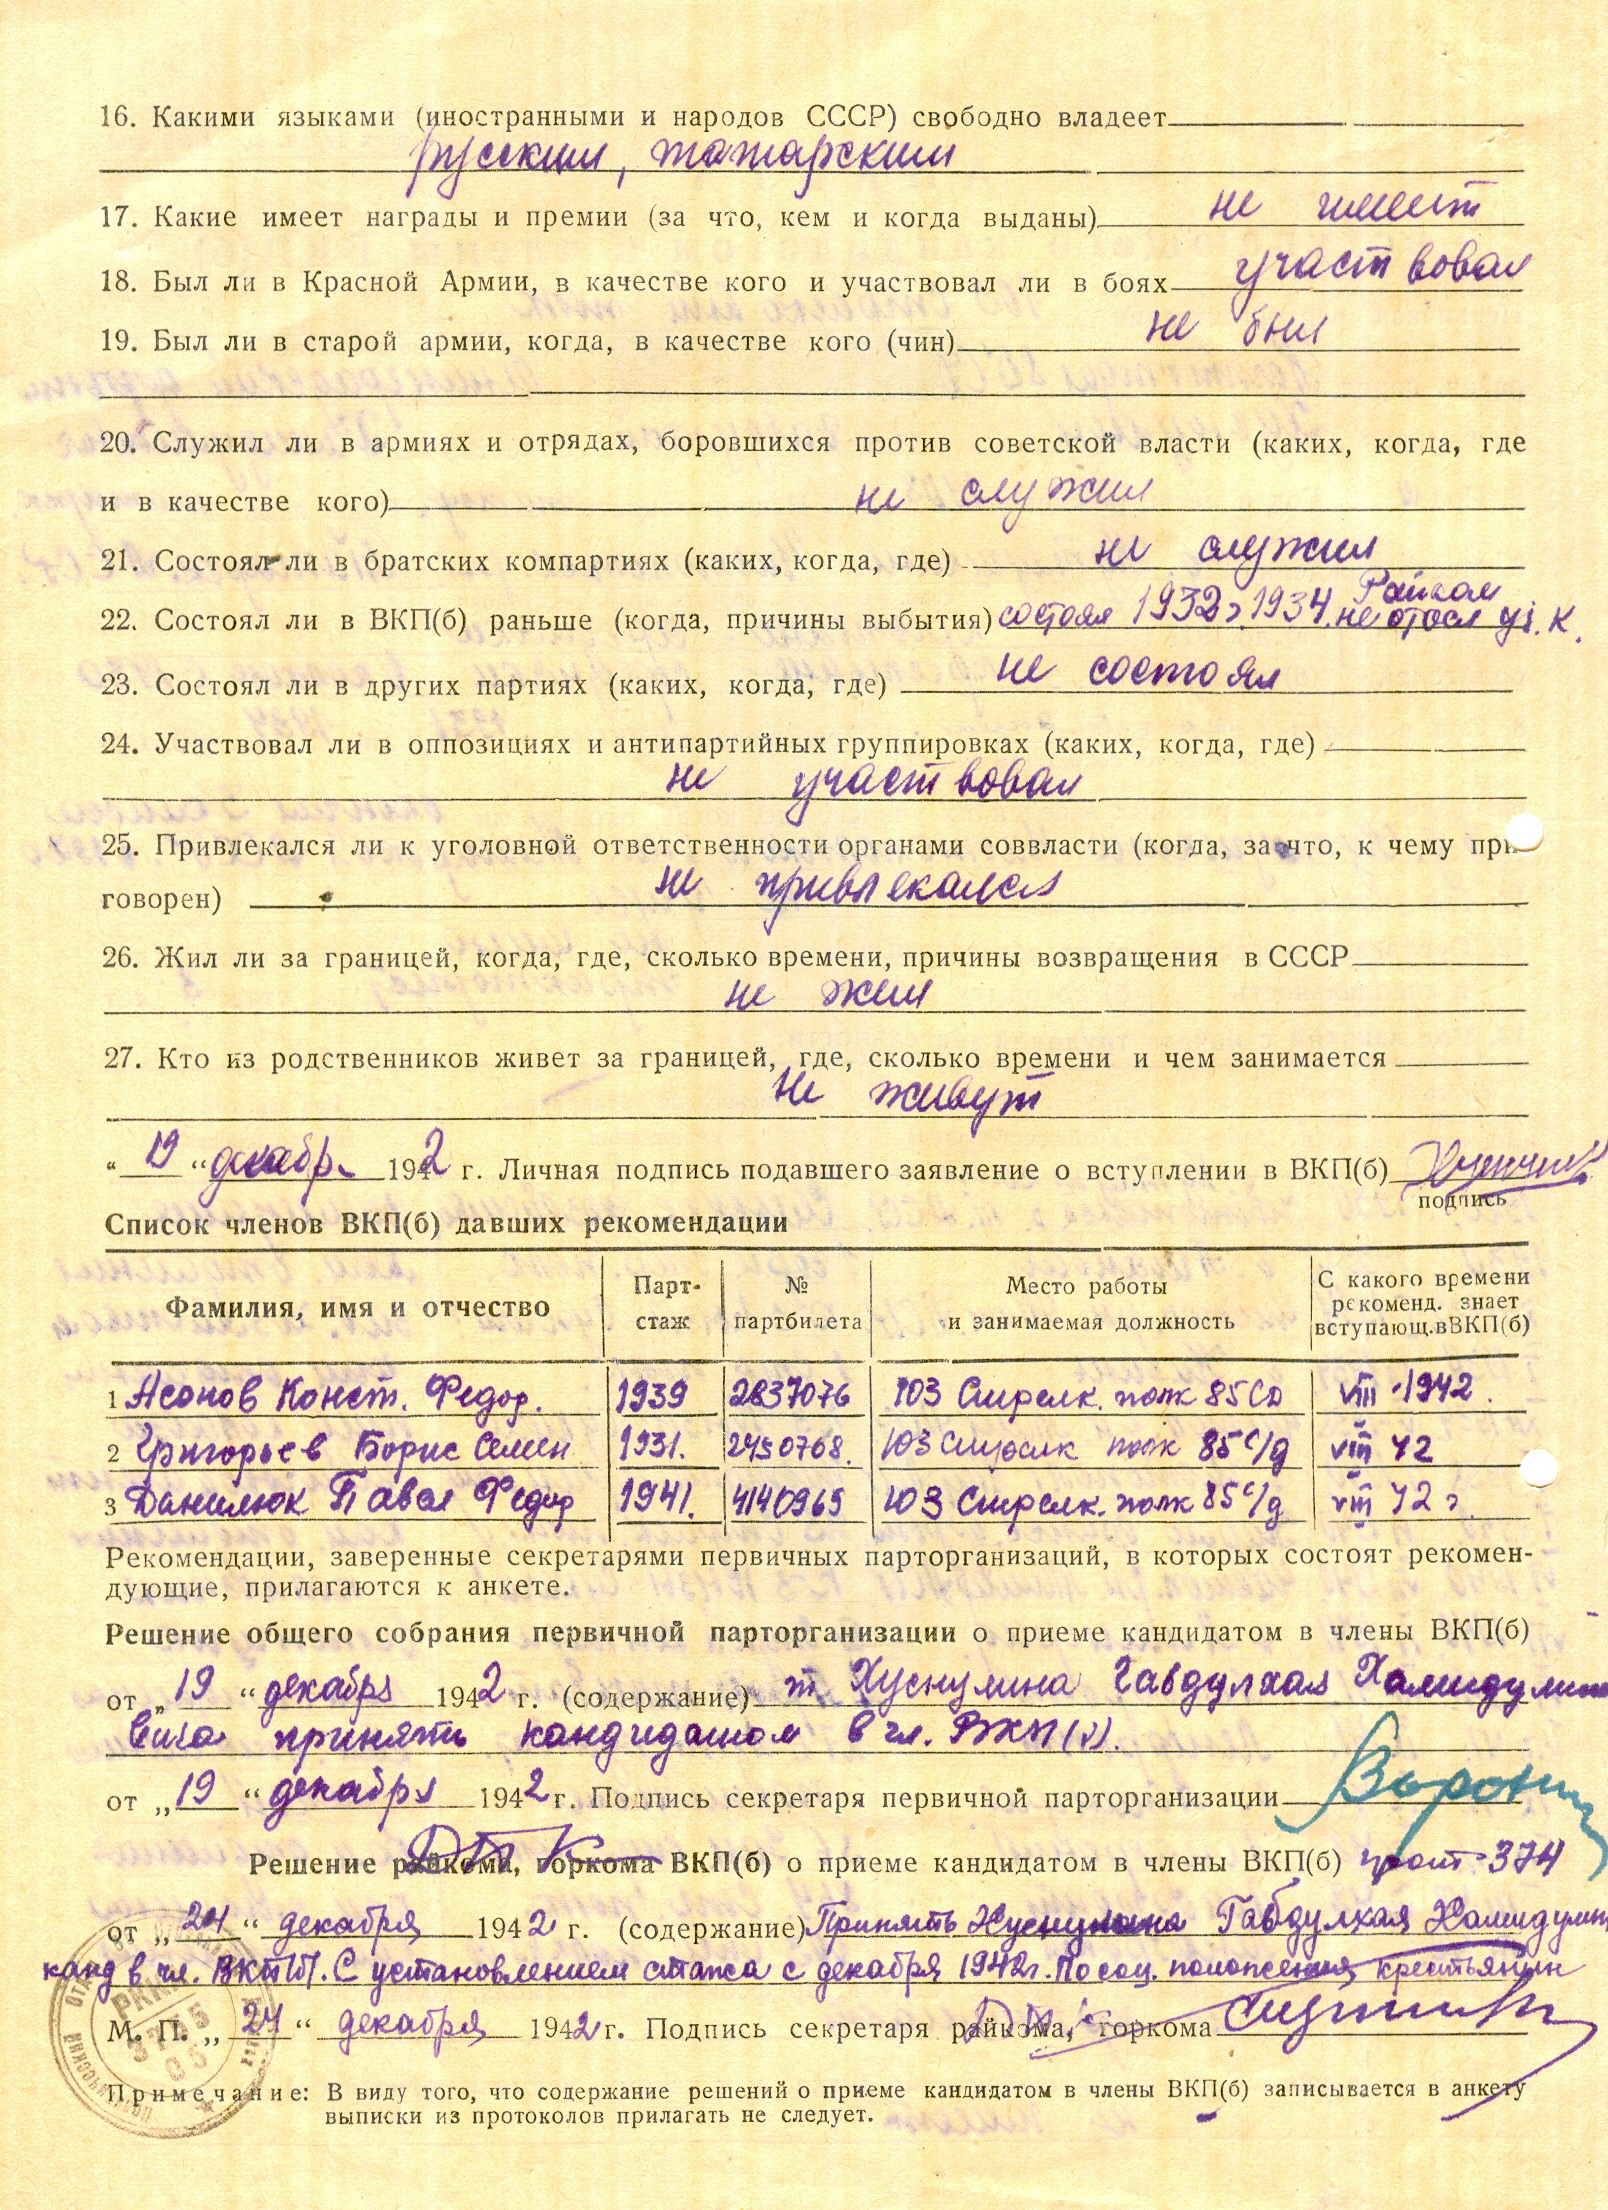 16. Какими языками (иностранными и народов СССР) свободно владеет
русским, татарским
17. Какие имеет награды и премии (за что, кем и когда выданы) не имеет
18. Был ли в Красной Армии, в качестве кого и участвовал ли в боях участвовал
19. Был ли в старой армии, когда, в качестве кого (чин) не был
20. Служил ли в армиях и отрядах, боровшихся против советской власти (каких, когда, где
и в качестве кого) не служил
21. Состоял ли в братских компартиях (каких, когда, где) не служил
22. Состоял ли в ВКП(б) раньше (когда, причины выбытия) состоял 1932 г. 1934. Райком не отосл уч. к.
23. Состоял ли в других партиях (каких, когда, где) не состоял
24. Участвовал ли в оппозициях и антипартийных группировках (каких, когда, где)
не участвовал
25. Привлекался ли к уголовной ответственности органами соввласти (когда, за что, к чему при-
говорен) не привлекался
26. Жил ли за границей, когда, где, сколько времени, причины возвращения в СССР
не жил
27. Кто из родственников живет за границей, где, сколько времени и чем занимается
не живут
"19" декабр. 1942 г. Личная подпись подавшего заявление о вступлении в ВКП(б)
подпись
Список членов ВКП(б) давших рекомендации
Фамилия, имя и отчество Парт-стаж № партбилета Место работы и занимаемая должность С какого времени рекоменд. знает вступающ. в ВКП(б)
1 Асонов Конст. Федор. 1939 2837076 103 Стрелк. полк 85 СД VIII-1942.
2 Григорьев Борис Семен 1931. 2450768. 103 Стрелк полк 85 с/д VIII 42
3 Данилюк Павел Федор 1941. 4140969 103 Стрелк. полк 85 с/д VIII 42 г.
Рекомендации, заверенные секретарями первичных парторганизаций, в которых состоят рекомен-
дующие, прилагаются к анкете.
Решение общего собрания первичной парторганизации о приеме кандидатом в члены ВКП(б)
от „19" декабря 1942 г. (содержание) т Хуснулина Гавдулхая Хамидулин
вича принять кандидатом в чл. ВКП(б).
от „19" декабря 1942 г. Подпись секретаря первичной парторганизации Воронин
Решение райкома, горкома ДПК ВКП(б) о приеме кандидатом в члены ВКП(б) прот 374
от „24" декабря 1942 г. (содержание) Принять Хуснулина Габдулхая Хамидулин
канд в чл. ВКП(б). С установлением стажа с декабря 1942 г. По соц. положения крестьянин
М. П. „24" декабря 1942 г. Подпись секретаря райкома, горкома ДПК
Примечание: В виду того, что содержание решений о приеме кандидатом в члены ВКП(б) записывается в анкету
выписки из протоколов прилагать не следует.